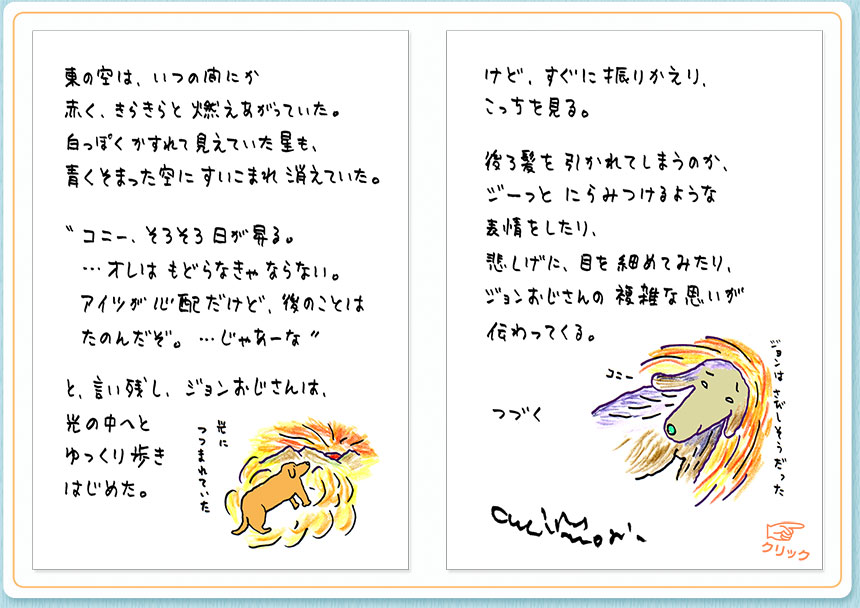 東の空は、いつの間にか
赤く、きらきらと燃えあがっていた。
白っぽくかすれて見えていた星も、
青くそまった空にすいこまれ消えていた。
〝コニー、そろそろ日が昇る。
…オレはもどらなきゃならない。
アイツが心配だけど、後のことは
たのんだぞ。…じゃあーな〟
と、言い残し、ジョンおじさんは、
光の中へと
ゆっくり歩き
はじめた。
光に
つつまれていた
けど、すぐに振りかえり、
こっちを見る。
後ろ髪を引かれてしまうのか、
ジーっとにらみつけるような
表情をしたり、
悲しげに、目を細めてみたり、
ジョンおじさんの複雑な思いが
伝わってくる。
コニー
ジョンはさびしそうだった
つづく
クリック